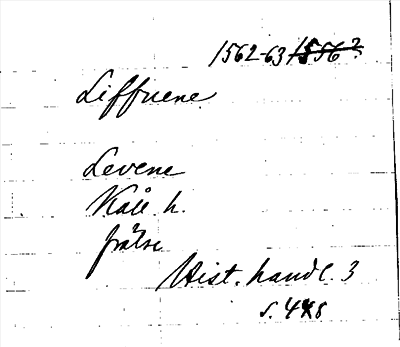 1562-63 1556?
Liffuene
Levene
Kåll. h.
frälse
Hist. handl. 3
s. 448